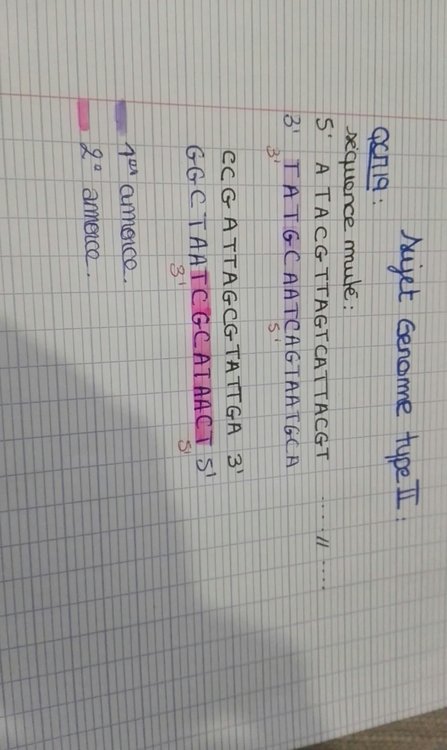 Sujet Genome type II :
QCM19 :
séquence muté :
5' ATACGTTAGTCATTACGT ....//....
3' TATGCAATCAGTAATGCA
3' 5'
CCGATTAGCGTATTGA 3'
GGCTAATCGCATAACT 5'
3' 5'
1er amorce.
2e amorce.